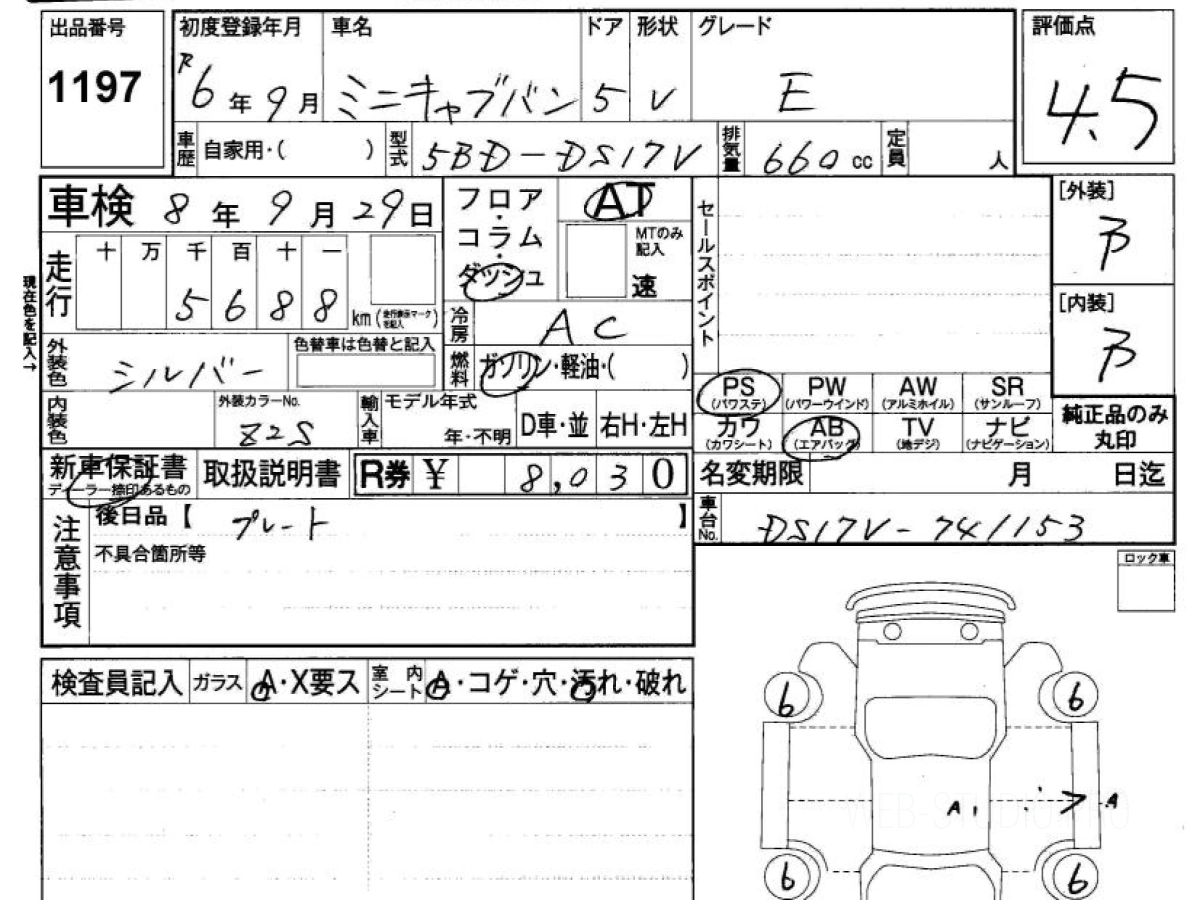 出品番号
1197
初度登録年月
R6年9月
車名
ミニキャブバン
ドア
5
形状
V
グレード
E
評価点
4.5
車歴
自家用・( )
型式
5BD-DS17V
排気量
660cc
定員
人
車検 8年9月29日
フロア・コラム・ダッシュ
AT
MTのみ記入
速
セールスポイント
[外装]
B
[内装]
B
現在色を記入→
走行
十 万 千 百 十 一
5 6 8 8 km(走行表示マークを記入)
冷房
AC
外装色
シルバー
色替車は色替と記入
燃料
ガソリン・軽油・( )
PS
(パワステ)
PW
(パワーウインド)
AW
(アルミホイル)
SR
(サンルーフ)
カワ
(カワシート)
AB
(エアバッグ)
TV
(地デジ)
ナビ
(ナビゲーション)
純正品のみ
丸印
内装色
外装カラーNo.
Z2S
輸入車
モデル年式
年・不明
D車・並
右H・左H
新車保証書
ディーラー捺印あるもの
取扱説明書
R券 ¥ 8,030
名変期限 月 日迄
車台No.
DS17V-741153
注意事項
後日品【 プレート 】
不具合箇所等
ロック車
検査員記入
ガラス
A・X要ス
室内シート
A・コゲ・穴・汚れ・破れ
6
6
A1
A
6
6
WEB-STUDIO.PRO